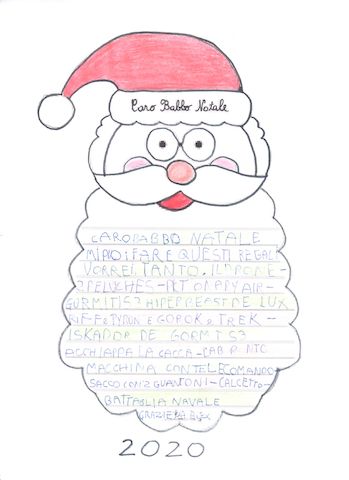 Caro Babbo Natale
CAROBABBO NATALE
MI PUOI FARE QUESTI REGALI
VORREI TANTO. IL DRONE-
PELUCHES-PET
GORMITI S3 HIPERBEAST DE LUX
RIFF E TYRON E GOROK E TREK-
ISKADOR DE GORMITI S3
ACCHIAPPA LA CACCA-
MACCHINA CON TELECOMANDO
SACCO CON 2 GUANTONI-CALCETTO-
BATTAGLIA NAVALE
GRAZIE
2020